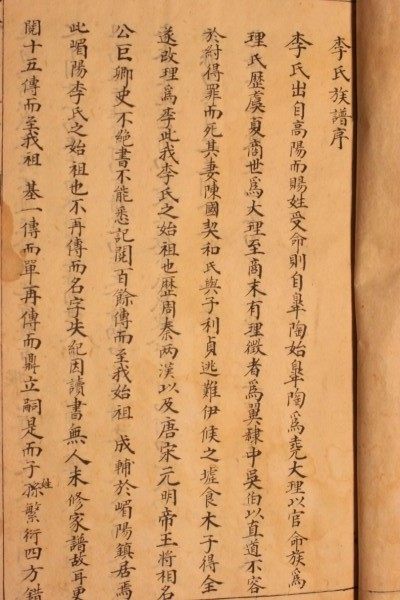 李氏族譜序
李氏出自高陽而賜姓受命則自臯陶始臯陶爲堯大理以官命族爲
理氏歷虞夏商世爲大理至商末有理徵者爲翼隸中吳伯以直道不容
於紂得罪而死其妻陳國契和氏與子利貞逃難伊候之墟食木子得全
遂改理爲李此我李氏之始祖也歷周秦两漢以及唐宋元明帝王將相名
公巨卿史不絶書不能悉記閱百餘傳而至我始祖 成輔於嵋陽鎮居焉
此嵋陽李氏之始祖也不再傳而名字失紀因讀書無人未修家譜故耳更
閱十五傳而至我祖 基一傳而單再傳而鼎立嗣是而子孫姓繁衍四方錯